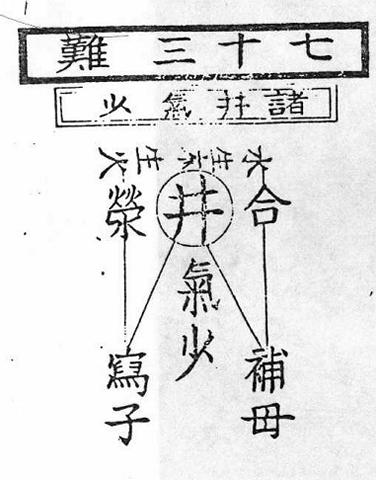 七十三難
諸井氣少
水生木生火
合
井
滎
氣少
補母
寫子